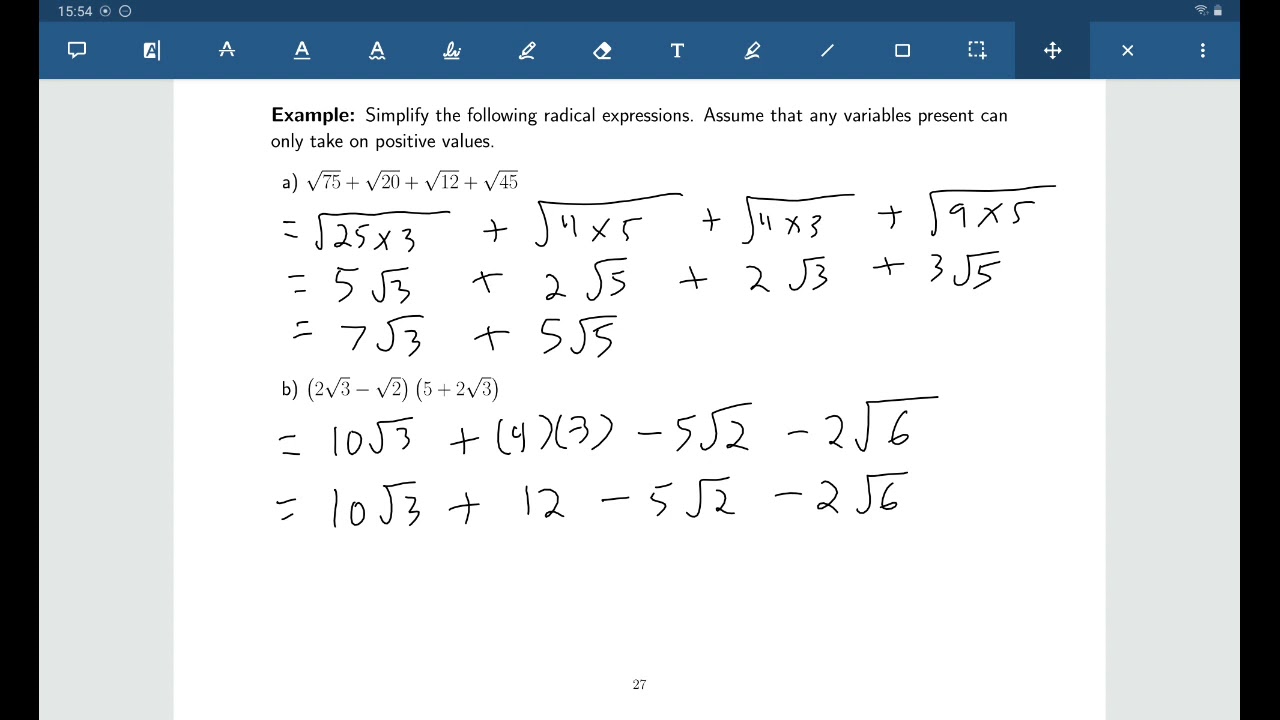 15:54
A A A A T
Example: Simplify the following radical expressions. Assume that any variables present can
only take on positive values.
a) √75 + √20 + √12 + √45
= √25×3 + √4×5 + √4×3 + √9×5
= 5√3 + 2√5 + 2√3 + 3√5
= 7√3 + 5√5
b) (2√3 − √2) (5 + 2√3)
= 10√3 + (4)(3) − 5√2 − 2√6
= 10√3 + 12 − 5√2 − 2√6
27